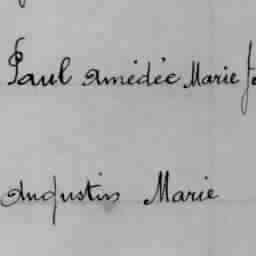 Paul Amédée Marie
Augustin Marie